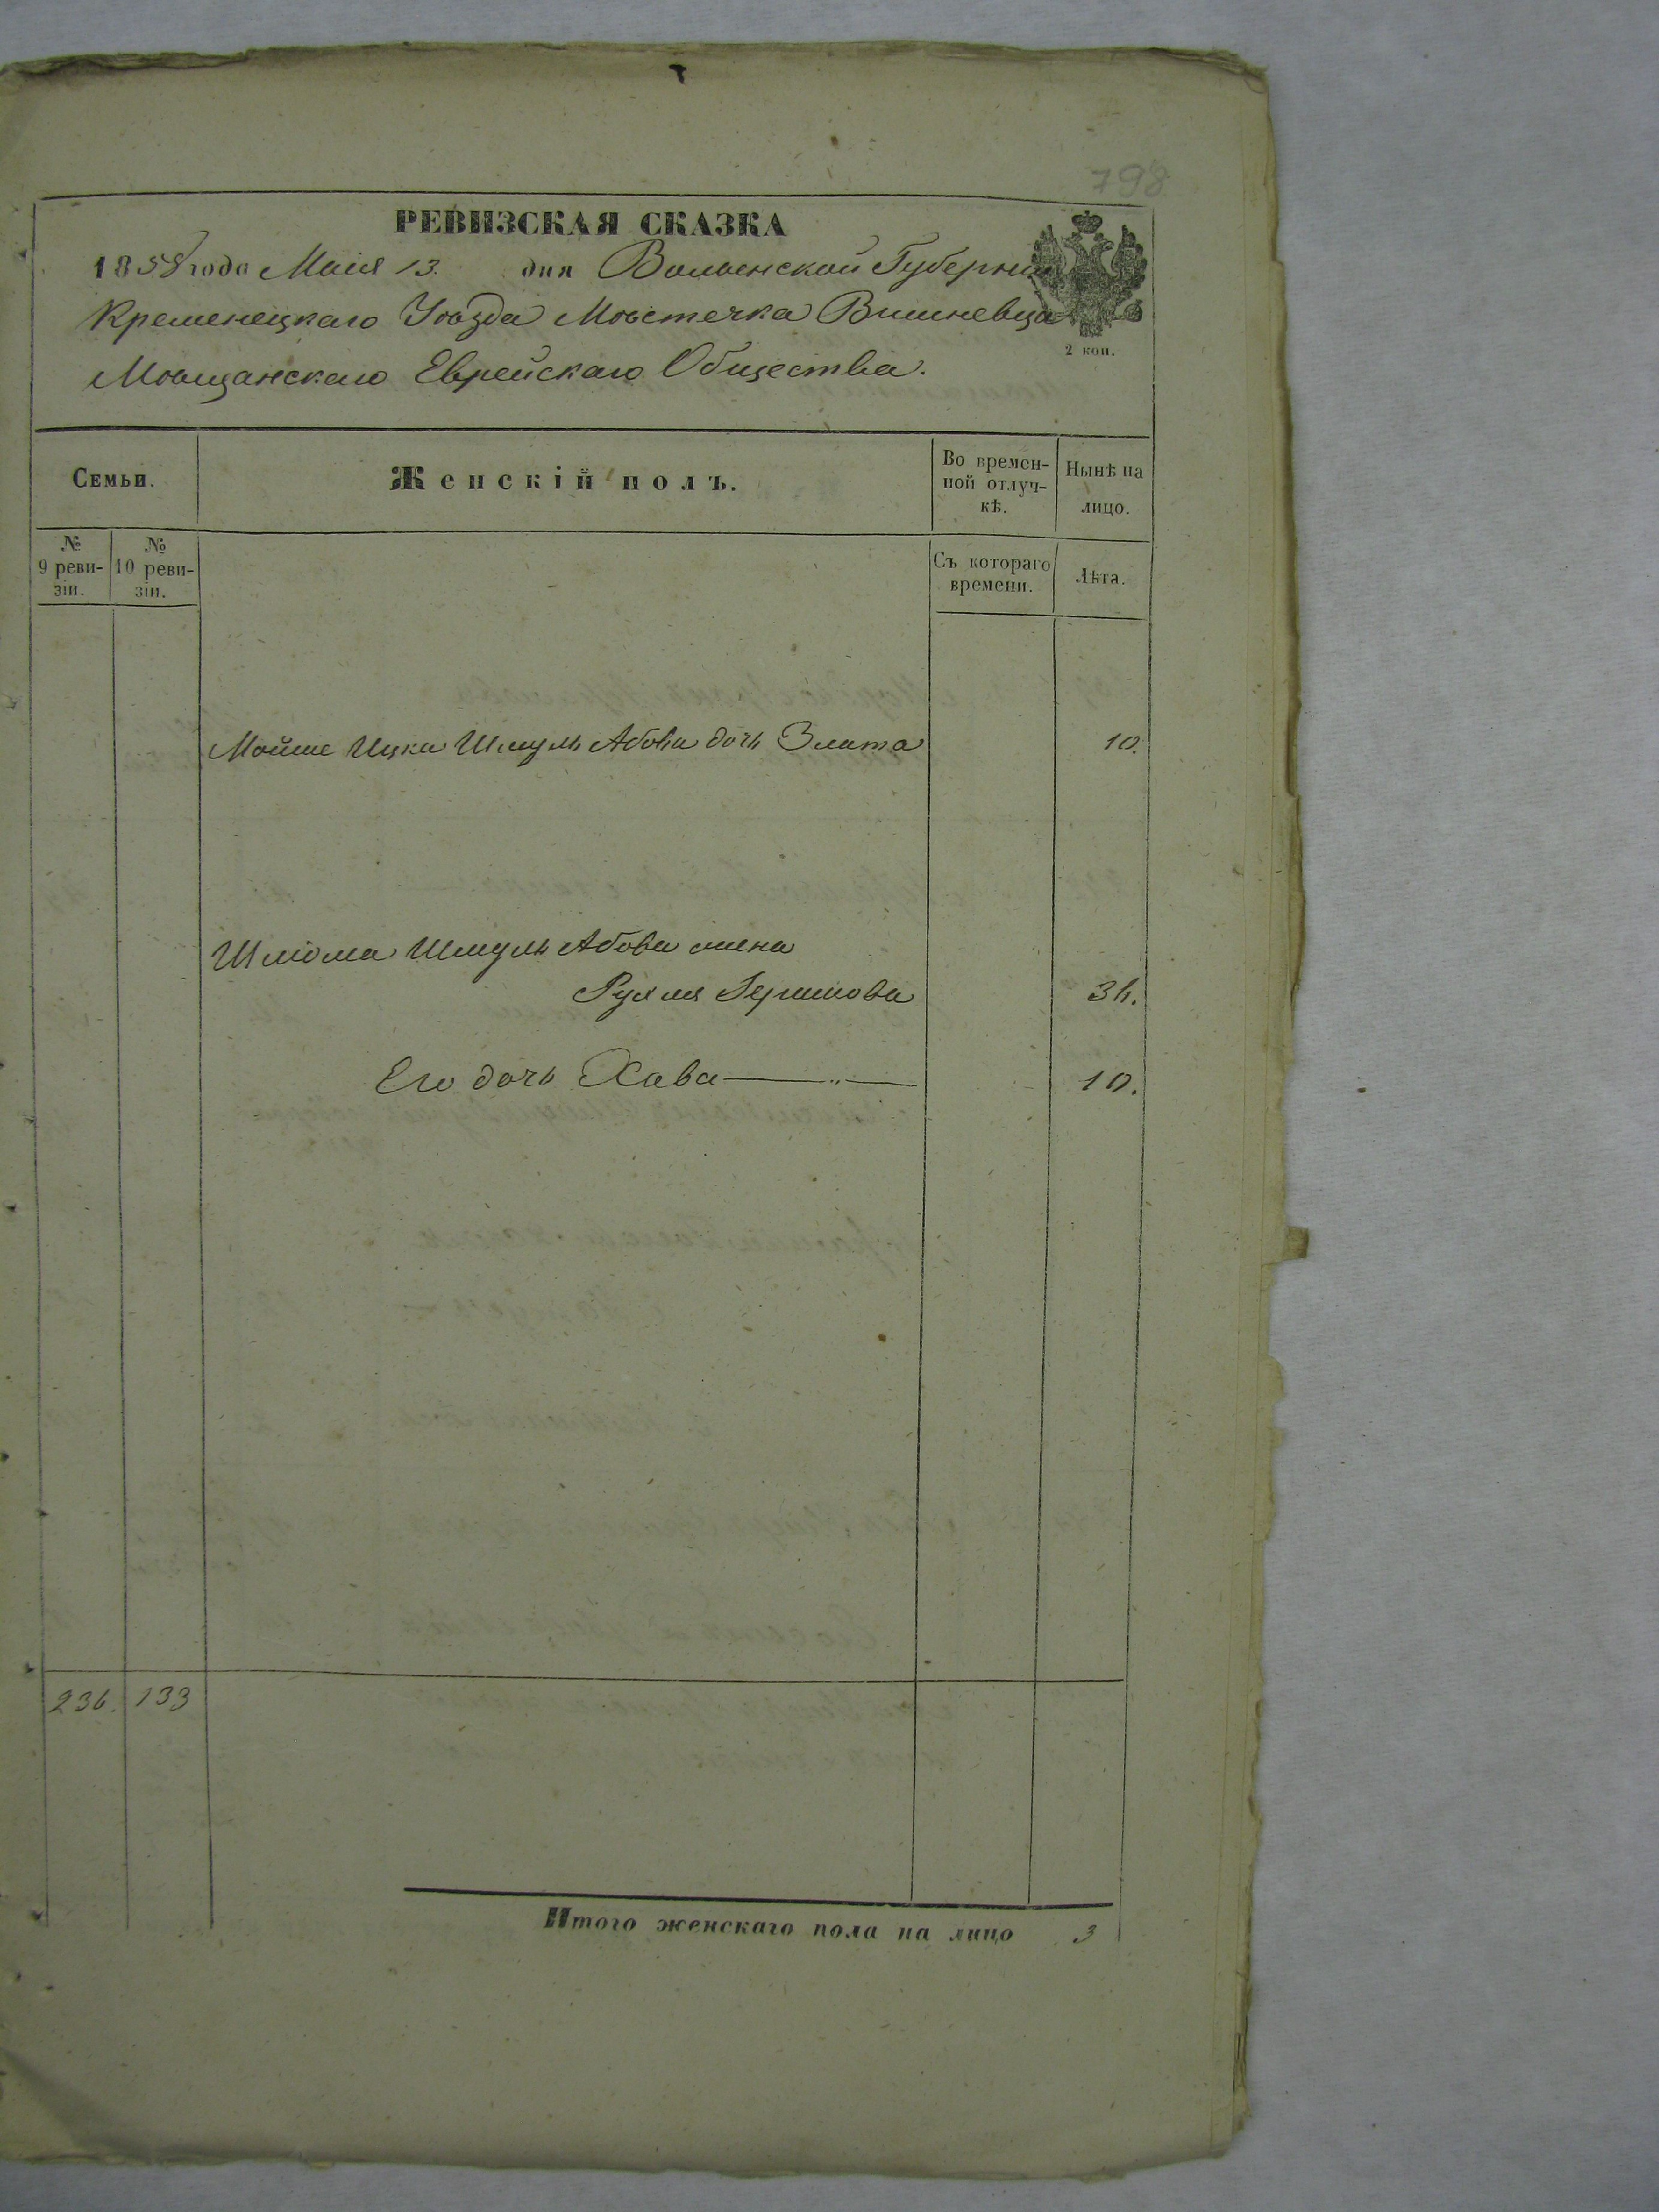 798
РЕВИЗСКАЯ СКАЗКА
1858 года Маія 13. дня Волынской Губерніи
Кременецкаго Уѣзда Мѣстечка Вишневца
2 коп.
Мѣщанскаго Еврейскаго Общества.
Семьи. Женскій полъ. Во времен-ной отлуч-кѣ. Нынѣ на лицо.
№ 9 реви-зіи. № 10 реви-зіи. Съ котораго времени. Лѣта.
Мойше Ицка Шмуль Абова дочь Злата 10.
Шліома Шмуль Абова жена
Рухля Гершкова 36.
Его дочь Хава — „ — 10.
236. 133
Итого женскаго пола на лицо 3